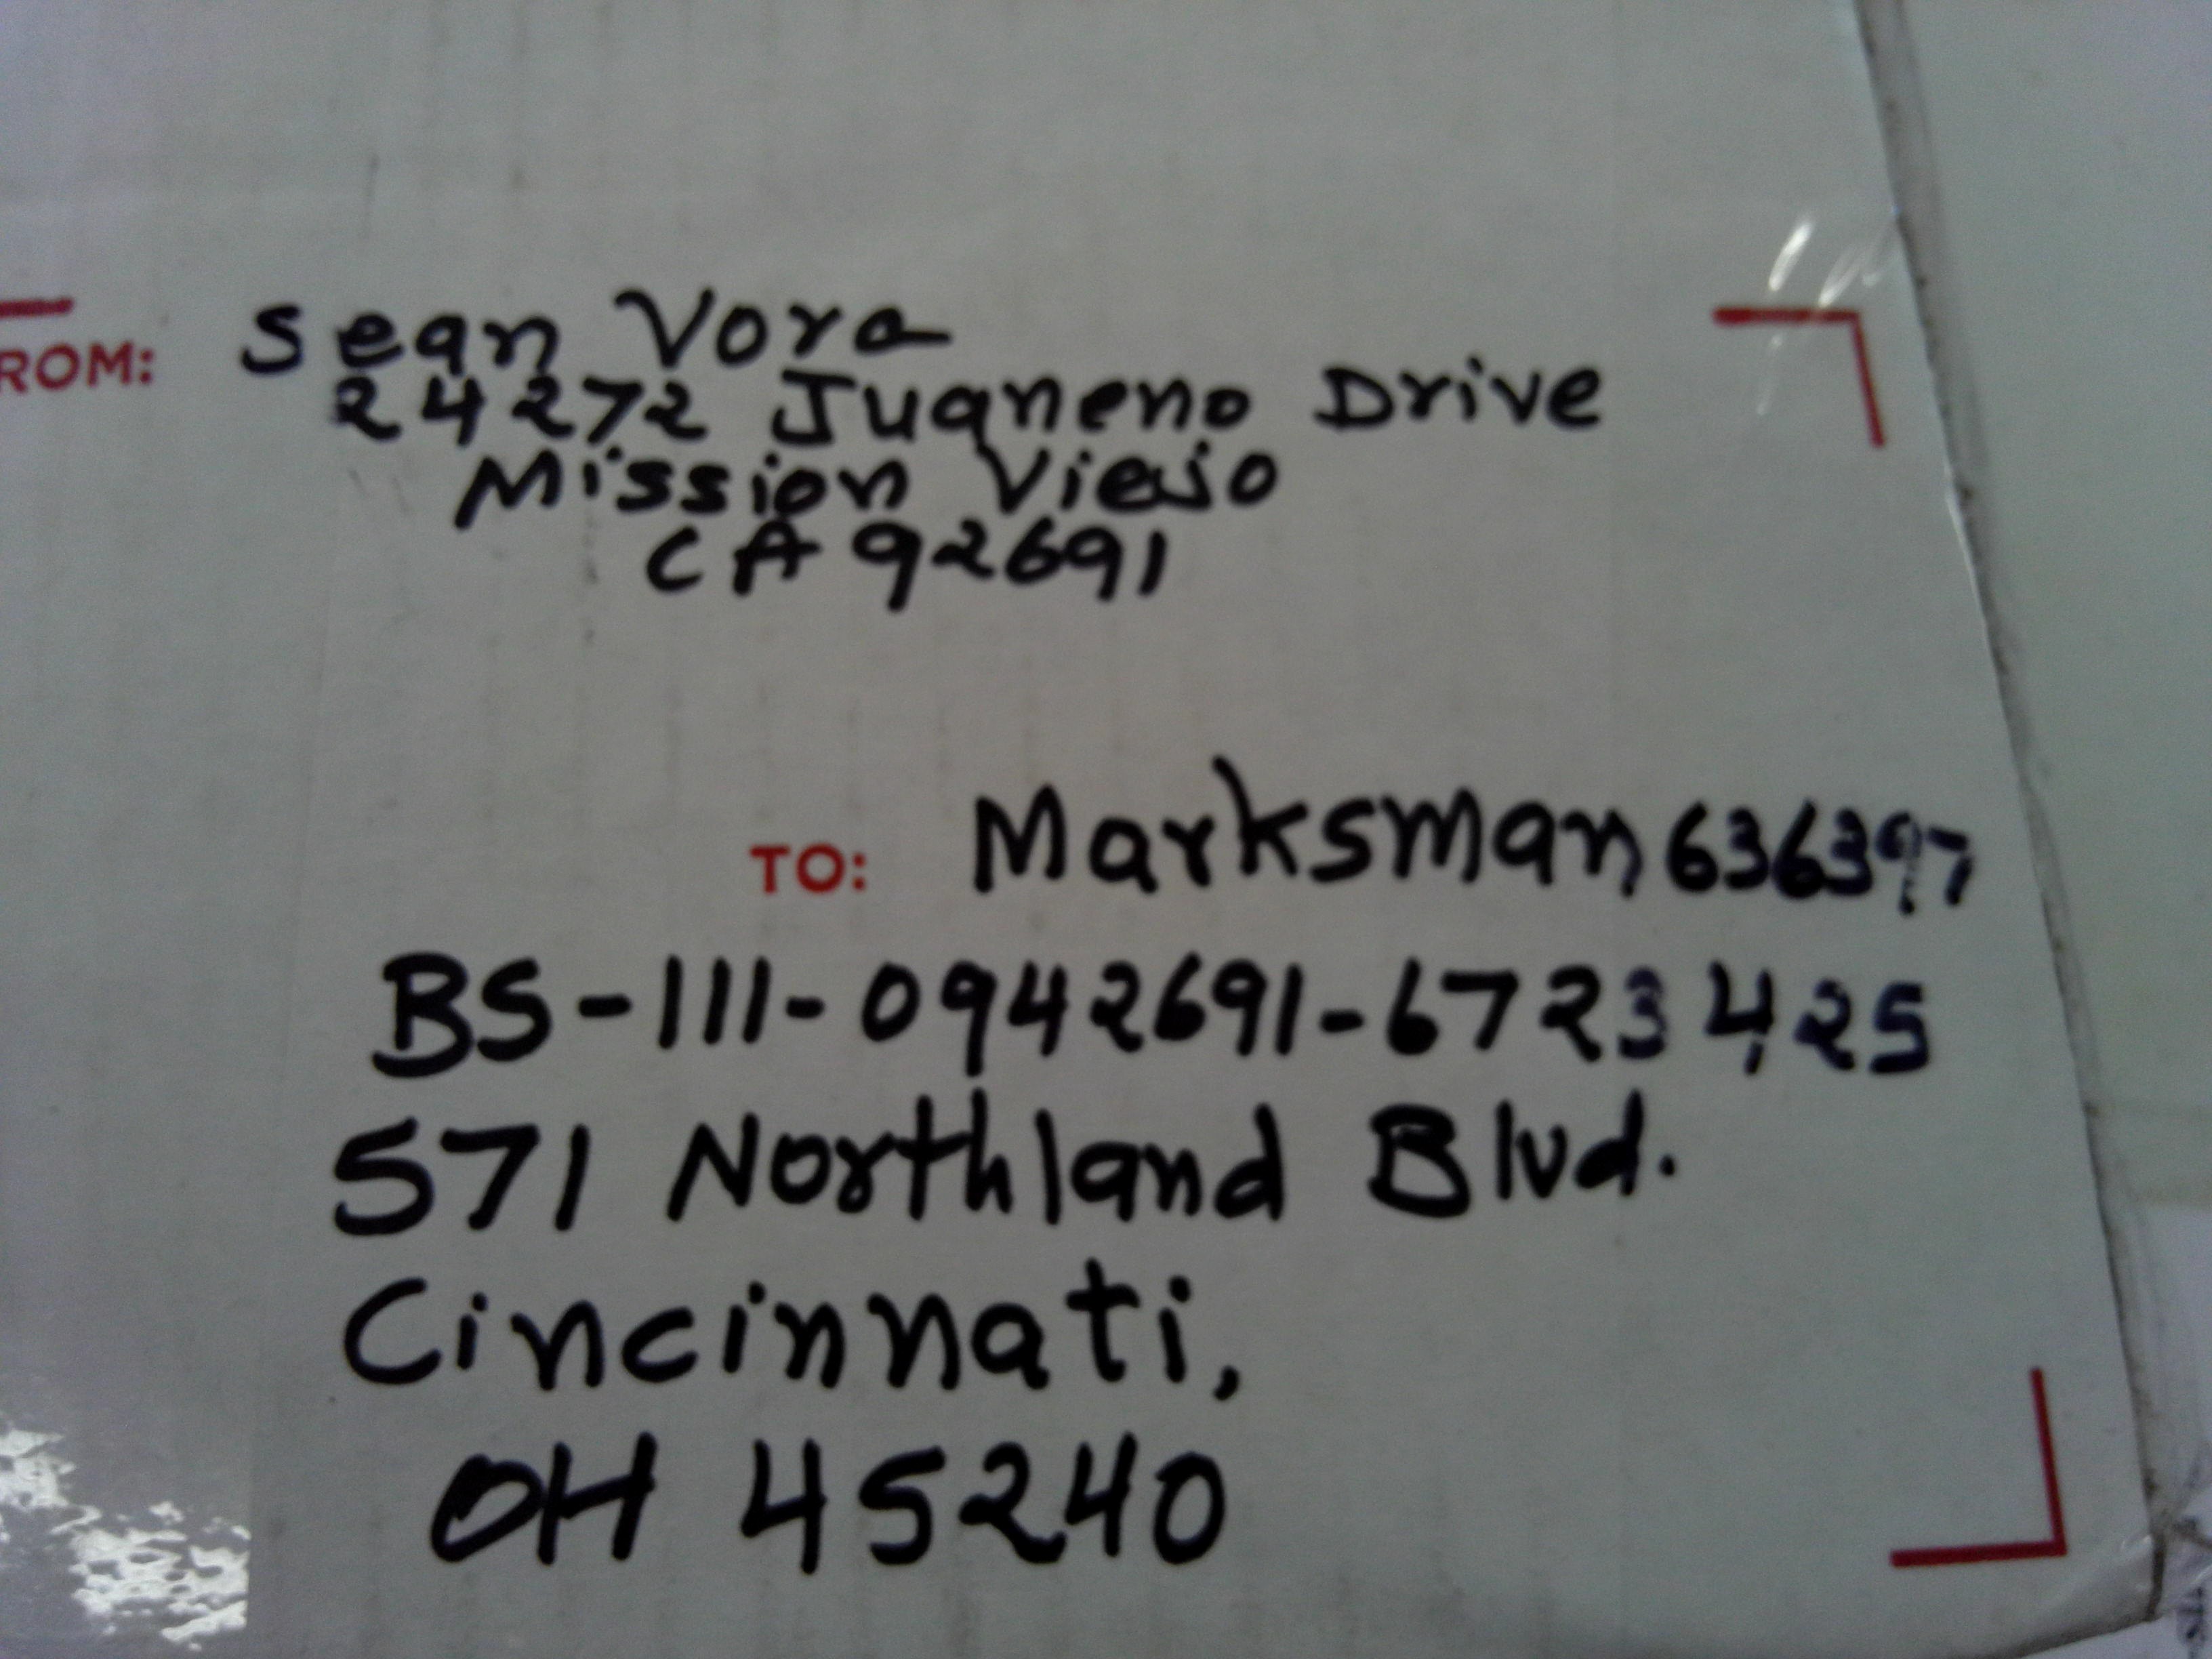 FROM: Sean Vora
24272 Juaneno Drive
Mission Viejo
CA 92691
TO: Marksman636397
BS-111-0942691-6723425
571 Northland Blvd.
Cincinnati,
OH 45240